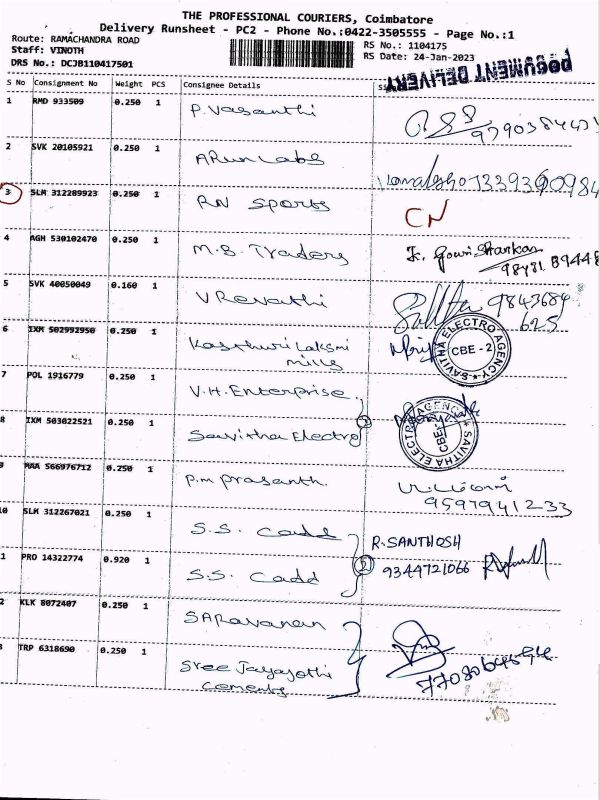 THE PROFESSIONAL COURIERS, Coimbatore
Delivery Runsheet - PC2 - Phone No.:0422-3505555 - Page No.:1
Route: RAMACHANDRA ROAD
Staff: VINOTH
DRS No.: DCJB110417501
RS No.: 1104175
RS Date: 24-Jan-2023
DOCUMENT DELIVERY
S No Consignment No Weight PCS Consignee Details
1 RMD 933509 0.250 1 P. Vasanthi
2 SVK 20105921 0.250 1 ARun Labs
3 SLM 312289923 0.250 1 RN Sports CN
4 AGH 530102470 0.250 1 M.B. Traders K. Gowri Shankar
98781 89448
5 SVK 40050049 0.160 1 V Revathi 9843684
625
6 IXM 502992950 0.250 1 Kasthuri Laksmi
mills
SAVITHA ELECTRO AGENCY CBE - 2
7 POL 1916779 0.250 1 V.H. Enterprise
8 IXM 503022521 0.250 1 Savitha Electro 2
SAVITHA ELECTRO AGENCY CBE-2
9 MAA 566976712 0.250 1 P.m prasanth.
95979 41233
10 SLM 312267021 0.250 1 S.S. Cadd R. SANTHOSH
1 PRO 14322774 0.920 1 S.S. Cadd 2 9344721066
2 KLK 8072407 0.250 1 SARavanan
3 TRP 6318690 0.250 1 Sree Jayajothi
cements